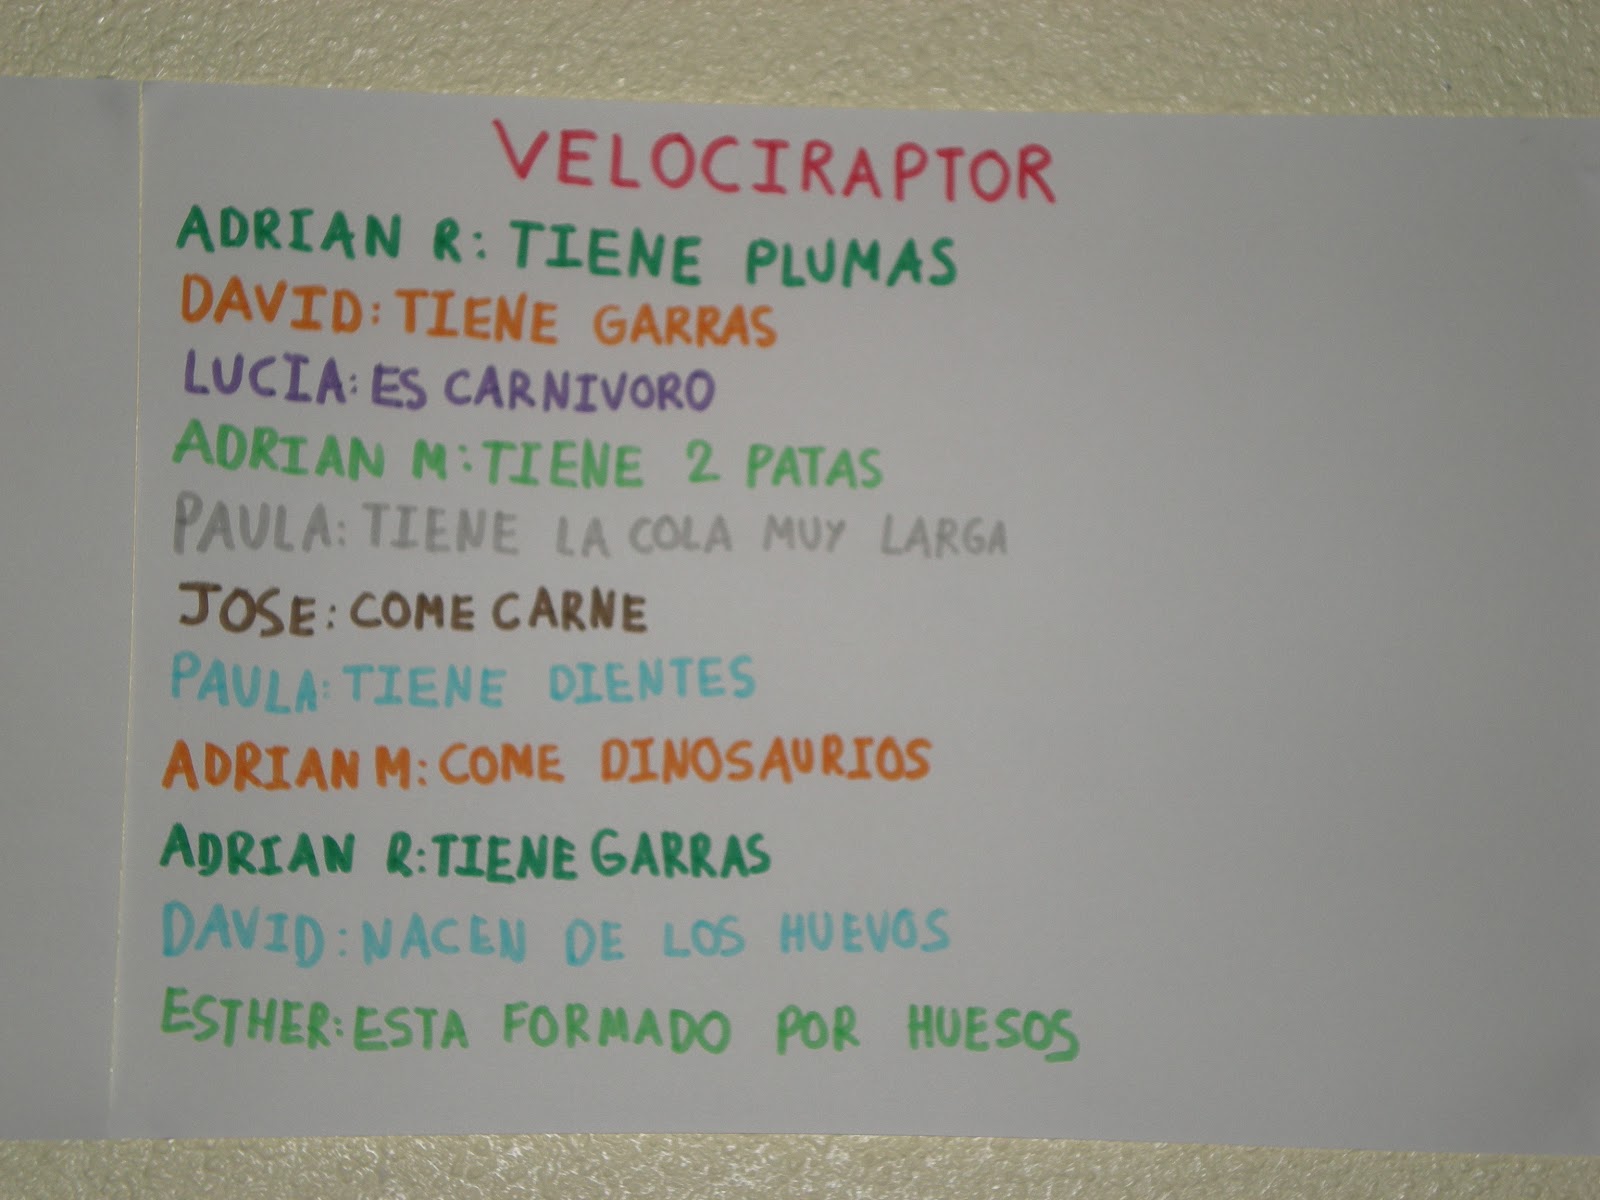 VELOCIRAPTOR
ADRIAN R: TIENE PLUMAS
DAVID: TIENE GARRAS
LUCIA: ES CARNIVORO
ADRIAN M: TIENE 2 PATAS
PAULA: TIENE LA COLA MUY LARGA
JOSE: COME CARNE
PAULA: TIENE DIENTES
ADRIAN M: COME DINOSAURIOS
ADRIAN R: TIENE GARRAS
DAVID: NACEN DE LOS HUEVOS
ESTHER: ESTA FORMADO POR HUESOS